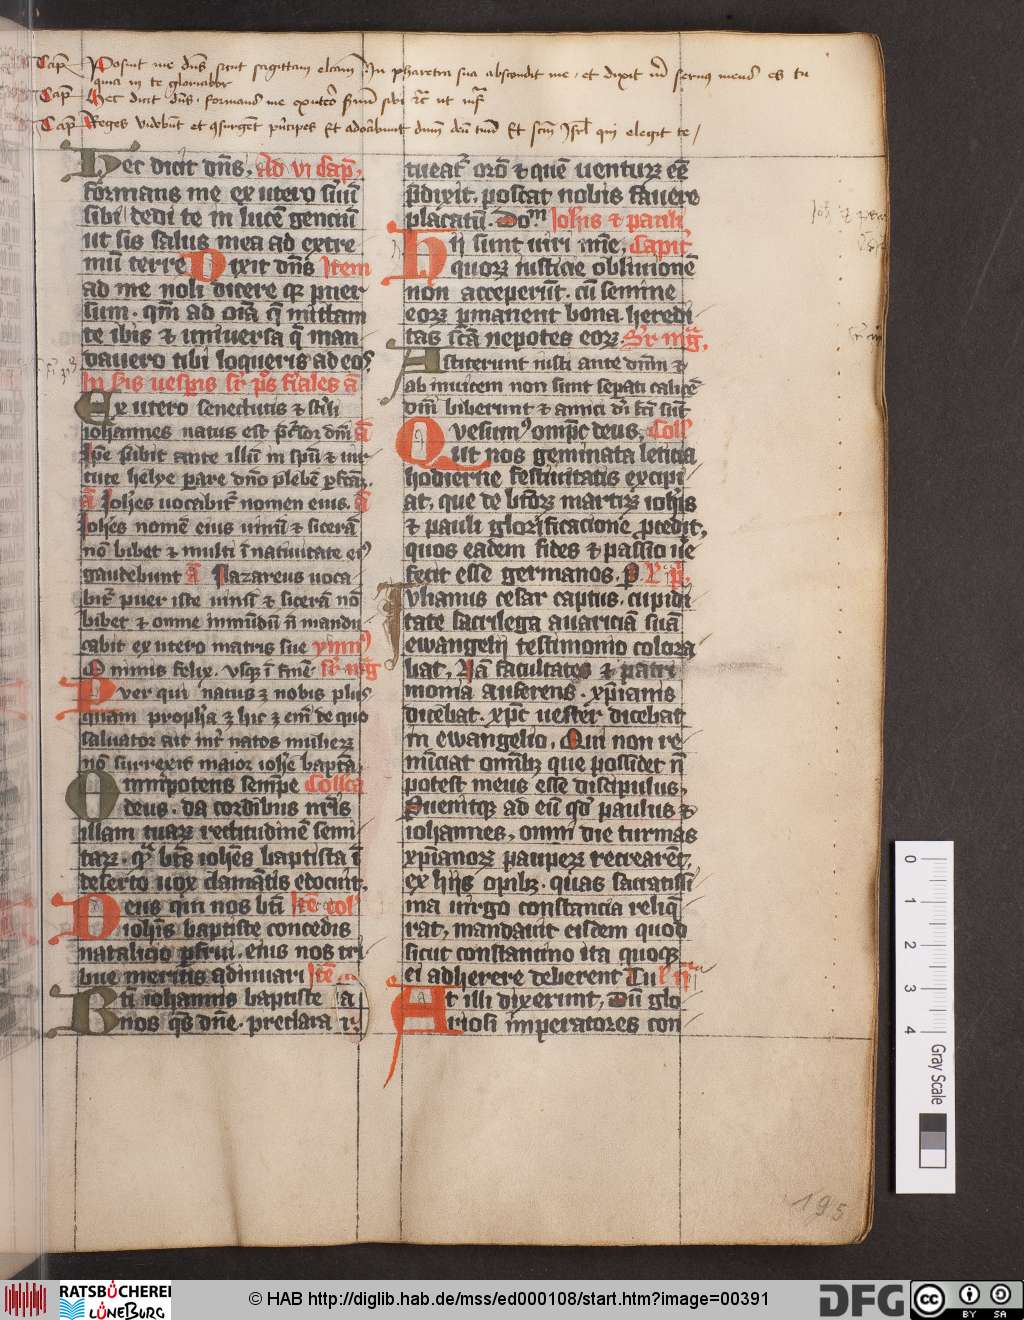 Capr Posuit me dns sicut sagittam electam In pharetra sua abscondit me et dixit michi servus meus es tu
quia in te gloriabor
Capr Hec dicit dns formans me ex utero servum sibi etc ut infra
Capr Reges videbunt et consurgent principes Et adorabunt dominum deum tuum Et sanctum Israel qui elegit te
Hec dicit dns, Ad vi Capr,
formans me ex utero suū
sibi dedi te in lucē genciū
ut sis salus mea ad extre
mū terre Dixit dns Item
ad me noli dicere qr puer
sum. qm ad oīa q mittam
te ibis & universa q man
davero tibi loqueris ad eos
In sis vespris sr ps feriales a
Ex utero senectutis & sterili
iohannes natus est pcursor dni a
Ipe subit ante illū in spū & vir
tute helye parare dno plebē pfcam
a Johes vocabitr nomen eius. a
Johes nomē eius vinū & sicerā
nō bibet & multi ī nativitate eiꝰ
gaudebunt a Nazareus voca
bitr puer iste vinū & sicerā nō
bibet & omne inmūdū n mandu
cabit ex utero matris sue ymnꝰ
O nimis felix. vsqꝫ ī finē. sr mg
Puer qui natus ꝫ nobis plus
quam propha ꝫ hic ꝫ em de quo
salvator ait intr natos mulierꝝ
nō surrexit maior iohe baptā
Omnipotens sempe Collca
deus. da cordibus nris
illam tuarꝝ rectitudinē semi
tarꝝ. qr bts iohes baptista ī
deserto vox clamātis edocuit.
Deus qui nos bti Itē col
iohis baptiste concedis
natalicio pfrui. eius nos tri
bue meritis adiuvari Itē
Bti iohannis baptiste
nos qs dne. preclara
tueatr orō & quē venturꝝ eē
pdixit. poscat nobis favere
placatū. Dom Johis & pauli
Hii sunt viri mie, Capitr
quorꝝ iusticie oblivionē
non acceperūt. cū semine
eorꝝ pmanent bona. heredi
tas scā nepotes eorꝝ. Sr mg.
Astiterunt iusti ante dnm &
ab invicem non sunt sepati calicē
dni biberunt & amici di fci sūt
Quesumꝰ ompc deus, Coll
Ut nos geminata leticia
hodierne festivitatis excipi
at, que de btorꝝ martirꝝ iohis
& pauli glorificacione pcedit,
quos eadem fides & passio ve
fecit esse germanos. p.
Julianus cesar captus. cupidi
tate sacrilega avariciā suā
ewangelij testimonio colora
bat, Nā facultates & patri
monia auferens. xpianis
dicebat. xpc vester dicebat
in ewangelio. Qui non re
nūciat omībꝫ que possidet n
potest meus esse discipulus,
Quenitqꝫ ad eū qd paulus &
iohannes, omni die turmas
xpianorꝝ pauperꝝ recrearēt,
ex hijs opibꝫ. quas sacratissi
ma virgo constancia reliq
rat, mandavit eisdem quod
sicut constantino ita quoqꝫ
ei adherere deberent Tu
At illi dixerunt, Dū glo
riosi imperatores con
195
0
1
2
3
4
Gray Scale
RATSBÜCHEREI
LÜNEBURG
© HAB http://diglib.hab.de/mss/ed000108/start.htm?image=00391
DFG
cc BY SA